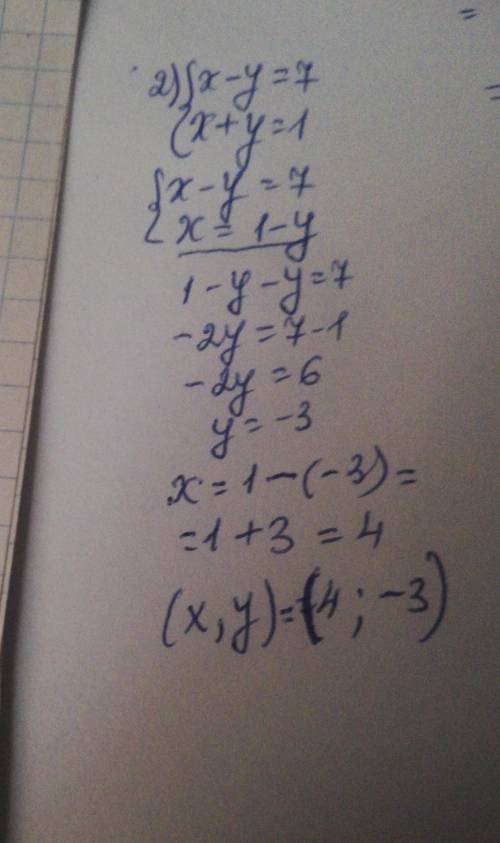 2) { x - y = 7
( x + y = 1
{ x - y = 7
x = 1 - y
1 - y - y = 7
-2y = 7 - 1
-2y = 6
y = -3
x = 1 - (-3) =
= 1 + 3 = 4
(x, y) = (4 ; -3)
=
=